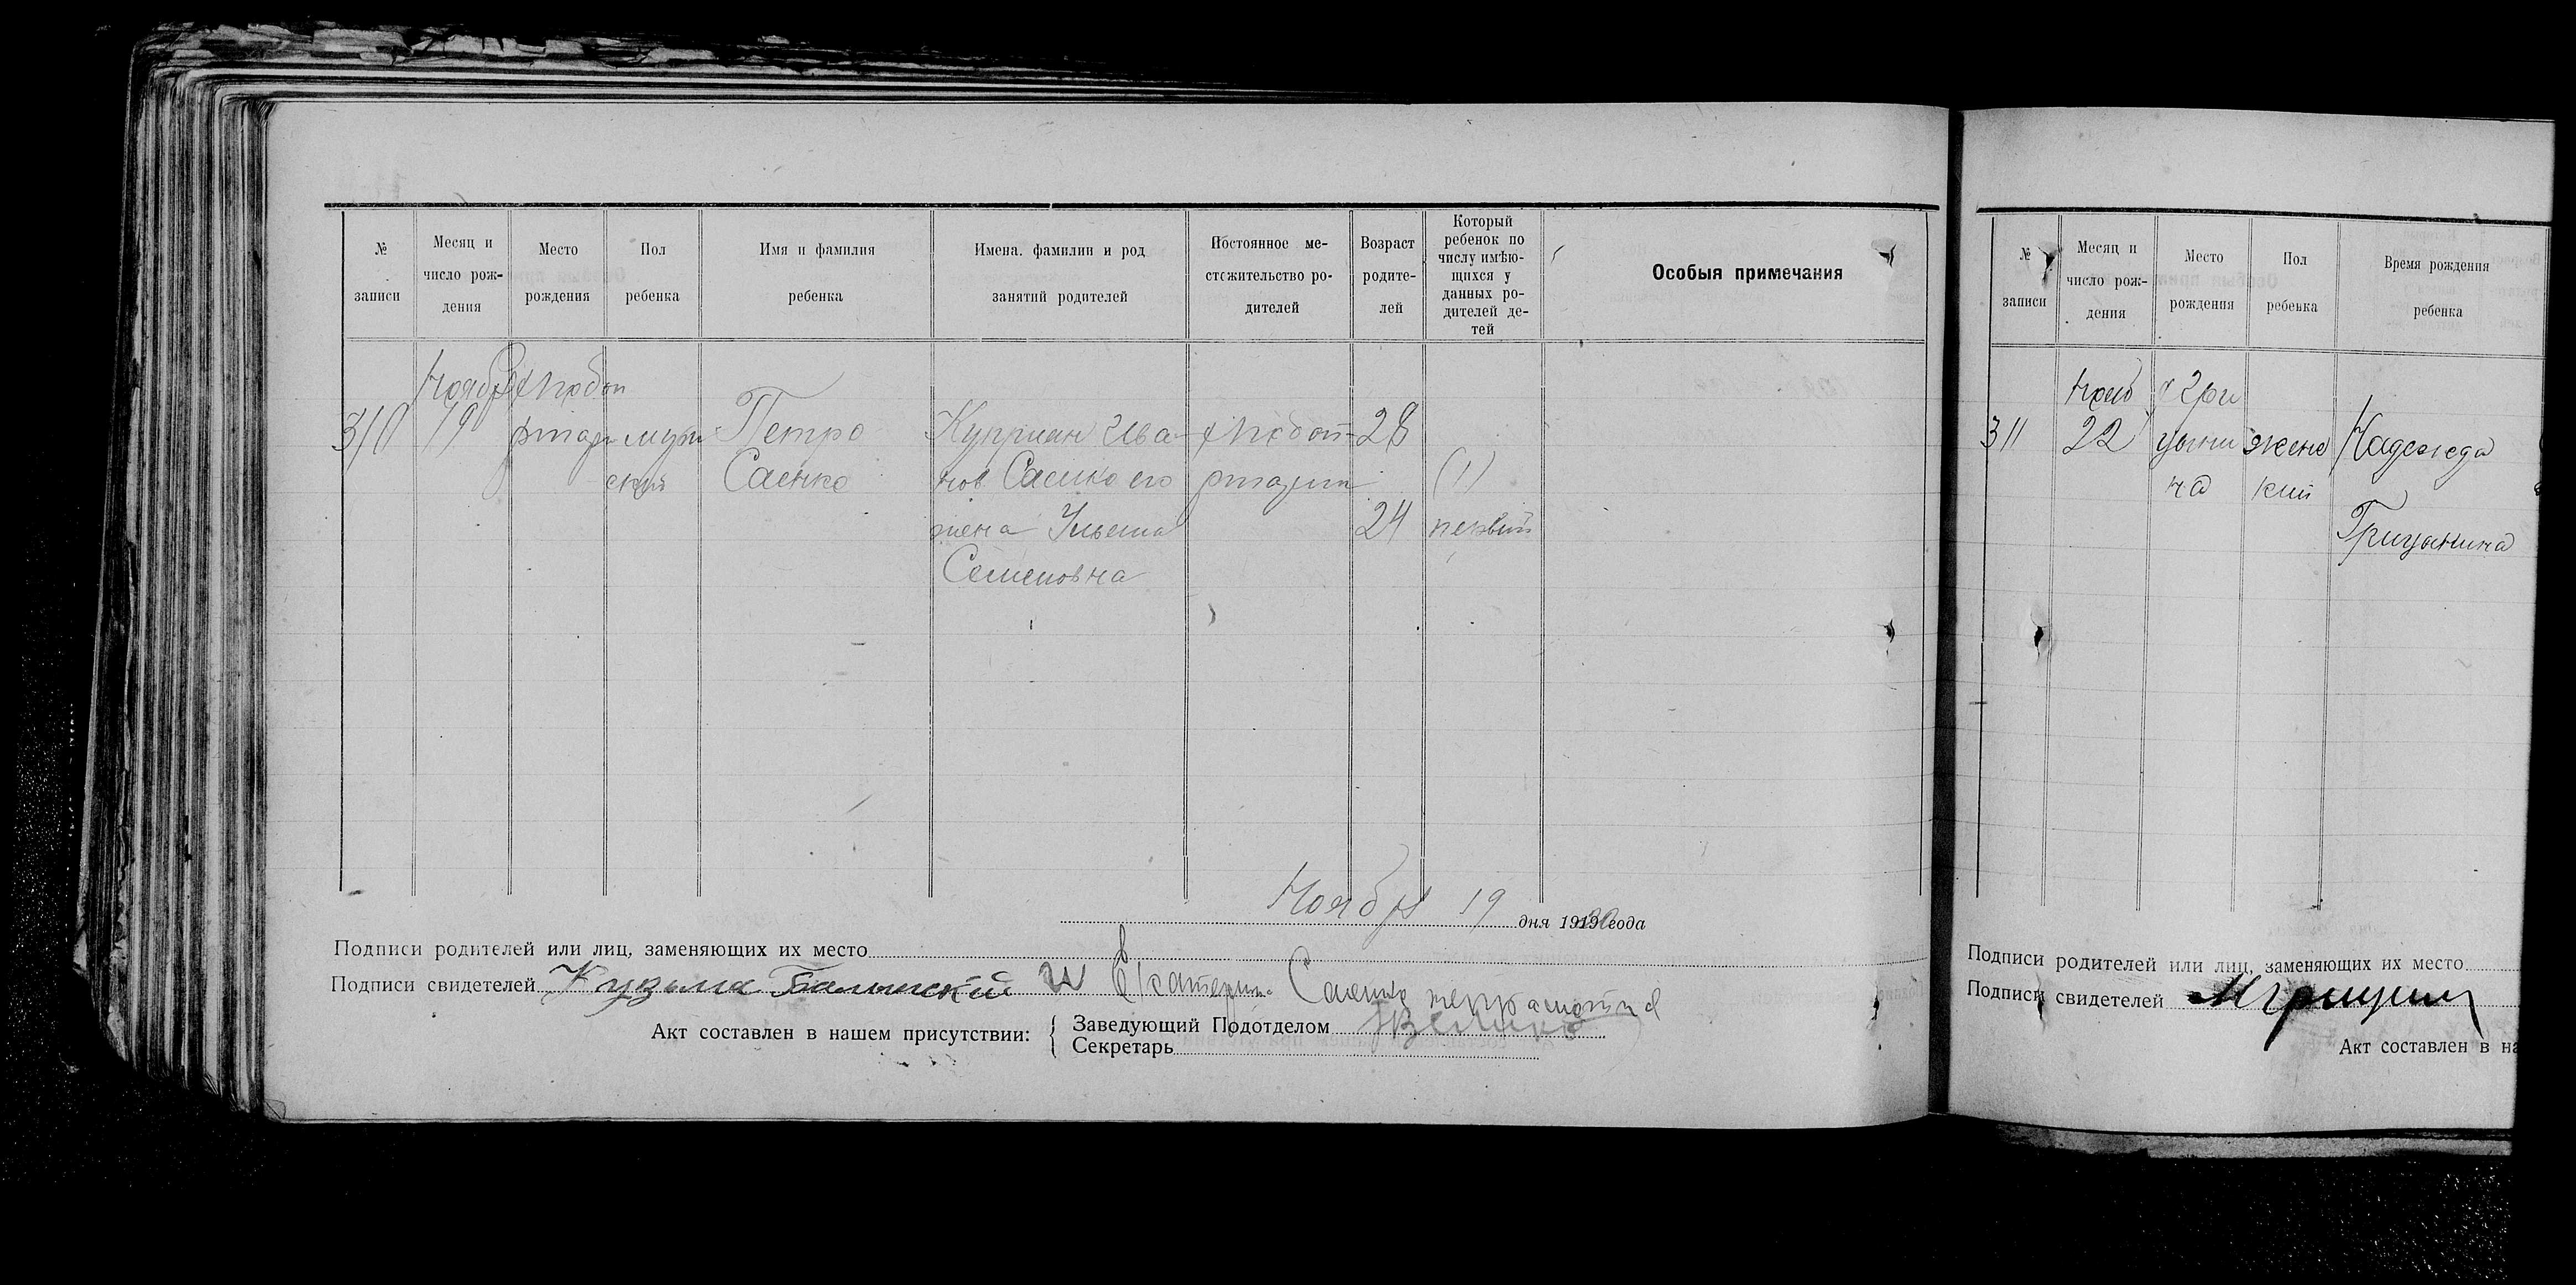 № записи
Месяц и число рож- дения
Место рождения
Пол ребенка
Имя и фамилия ребенка
Имена. фамилии и род занятий родителей
Постоянное ме- стожительство ро- дителей
Возраст родите- лей
Который ребенок по числу имѣю- щихся у данных ро- дителей де- тей
Особыя примечания
Ноябр
310 19 муж Петро Куприан Ива 28
ский Саенко нов Саенко его (1)
жена Ульяна 24 первый
Семеновна
Ноября 19 дня 1919 года
Подписи родителей или лиц, заменяющих их место
Подписи свидетелей Кузьма и Екатерина Саенко
Акт составлен в нашем присутствии:
Заведующий Подотделом
Секретарь
№ записи
Месяц и число рож- дения
Место рождения
Пол ребенка
Время рождения ребенка
х Гри
311 22 цыни женс Надежда
на кий
Грицынина
Подписи родителей или лиц, заменяющих их место
Подписи свидетелей
Акт составлен в на